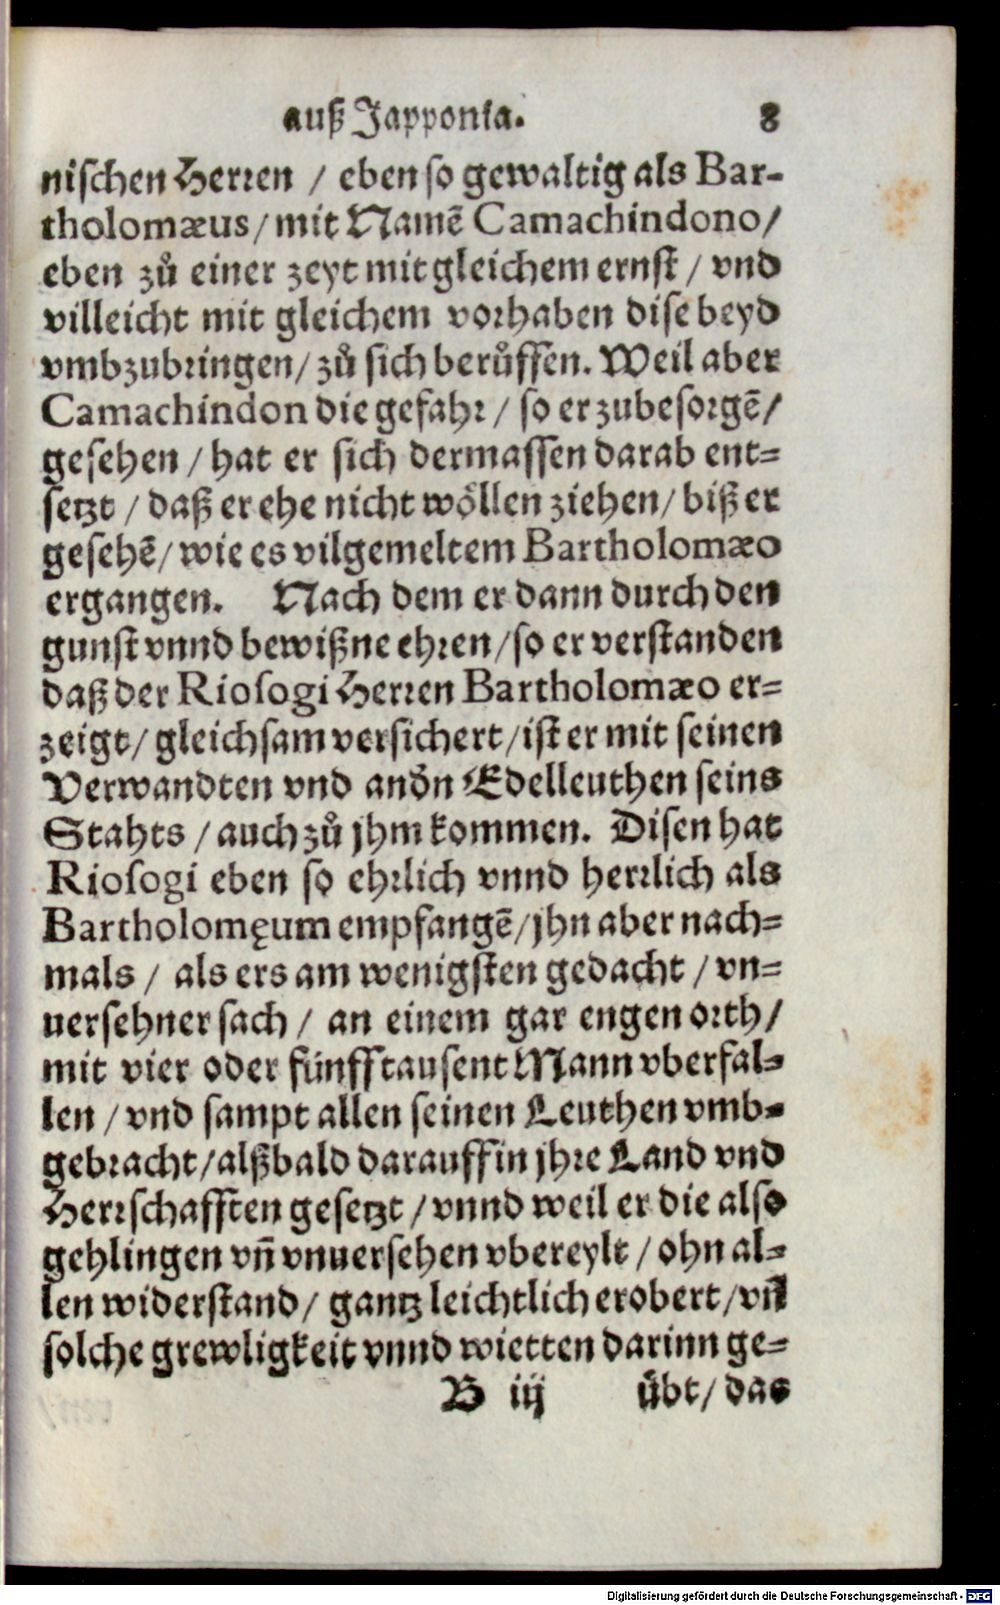 auß Japponia. 8
nischen Herren / eben so gewaltig als Bar-
tholomæus / mit Namẽ Camachindono /
eben zů einer zeyt mit gleichem ernst / vnd
villeicht mit gleichem vorhaben dise beyd
vmbzubringen / zů sich berůffen. Weil aber
Camachindon die gefahr / so er zubesorgẽ /
gesehen / hat er sich dermassen darab ent-
setzt / daß er ehe nicht wöllen ziehen / biß er
gesehẽ / wie es vilgemeltem Bartholomæo
ergangen. Nach dem er dann durch den
gunst vnnd bewißne ehren / so er verstanden
daß der Riosogi Herren Bartholomæo er-
zeigt / gleichsam versichert / ist er mit seinen
Verwandten vnd andn Edelleuthen seins
Stahts / auch zů jhm kommen. Disen hat
Riosogi eben so ehrlich vnnd herrlich als
Bartholomęum empfangẽ / jhn aber nach-
mals / als ers am wenigsten gedacht / vn-
uersehner sach / an einem gar engen orth /
mit vier oder fünfftausent Mann vberfal-
len / vnd sampt allen seinen Leuthen vmb-
gebracht / alßbald darauff in jhre Land vnd
Herrschafften gesetzt / vnnd weil er die also
gehlingen vñ vnuersehen vbereylt / ohn al-
len widerstand / gantz leichtlich erobert / vñ
solche grewligkeit vnnd wietten darinn ge-
B iij übt / das
Digitalisierung gefördert durch die Deutsche Forschungsgemeinschaft - DFG